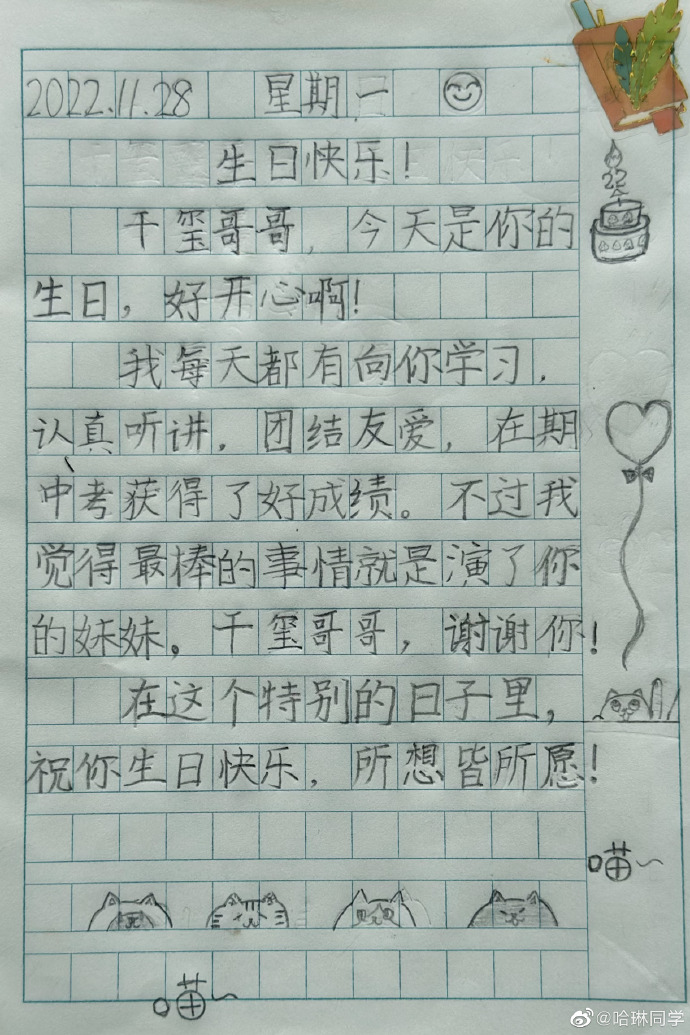 2022.11.28 星期一
生日快乐!
千玺哥哥,今天是你的
生日,好开心啊!
我每天都有向你学习,
认真听讲,团结友爱,在期
中考获得了好成绩。不过我
觉得最棒的事情就是演了你
的妹妹。千玺哥哥,谢谢你!
在这个特别的日子里,
祝你生日快乐,所想皆所愿!
22
喵~
喵~
@哈琳同学